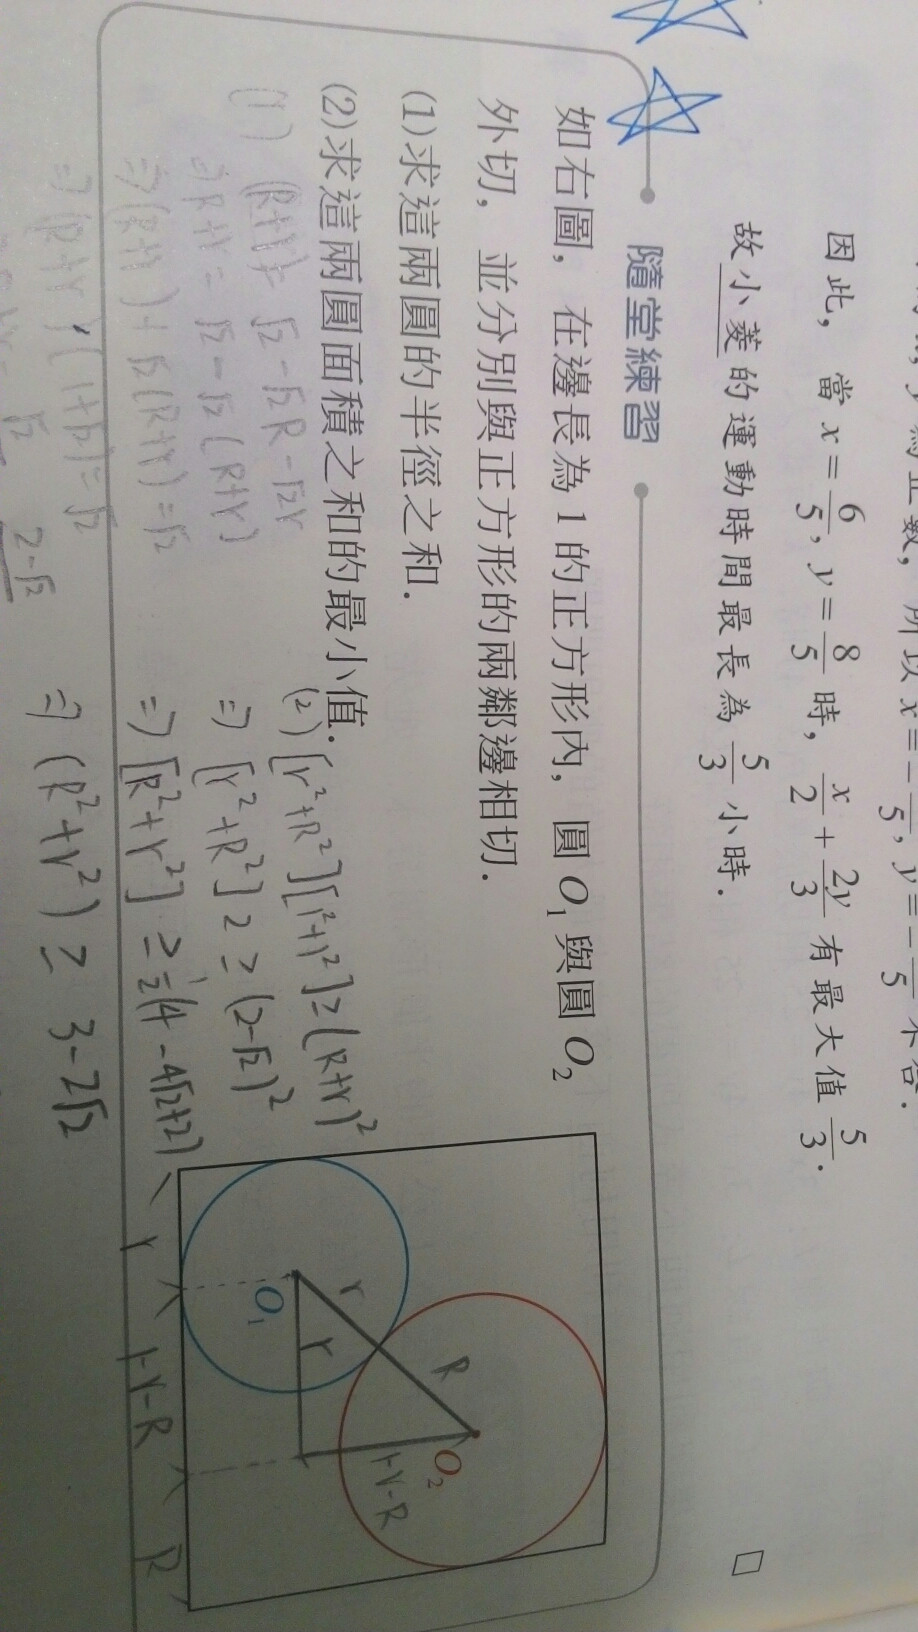 因此，當 x=6/5, y=8/5 時，x/2+2y/3 有最大值 5/3.
故小菱的運動時間最長為 5/3 小時.
□
隨堂練習
如右圖，在邊長為 1 的正方形內，圓 O₁ 與圓 O₂
外切，並分別與正方形的兩鄰邊相切.
(1)求這兩圓的半徑之和.
(2)求這兩圓面積之和的最小值.
(1) (R+r)= √2-√2R-√2r
⇒ R+r= √2-√2(R+r)
⇒ (R+r)+√2(R+r)=√2
⇒ (R+r)(1+√2)=√2
2-√2
(2) [r²+R²][1²+1²]≥(R+r)²
⇒ [r²+R²]2≥(2-√2)²
⇒ [R²+r²]≥1/2(4-4√2+2)
⇒ (R²+r²)≥3-2√2
R
O₂
1-r-R
r
O₁
r
r
1-r-R
R